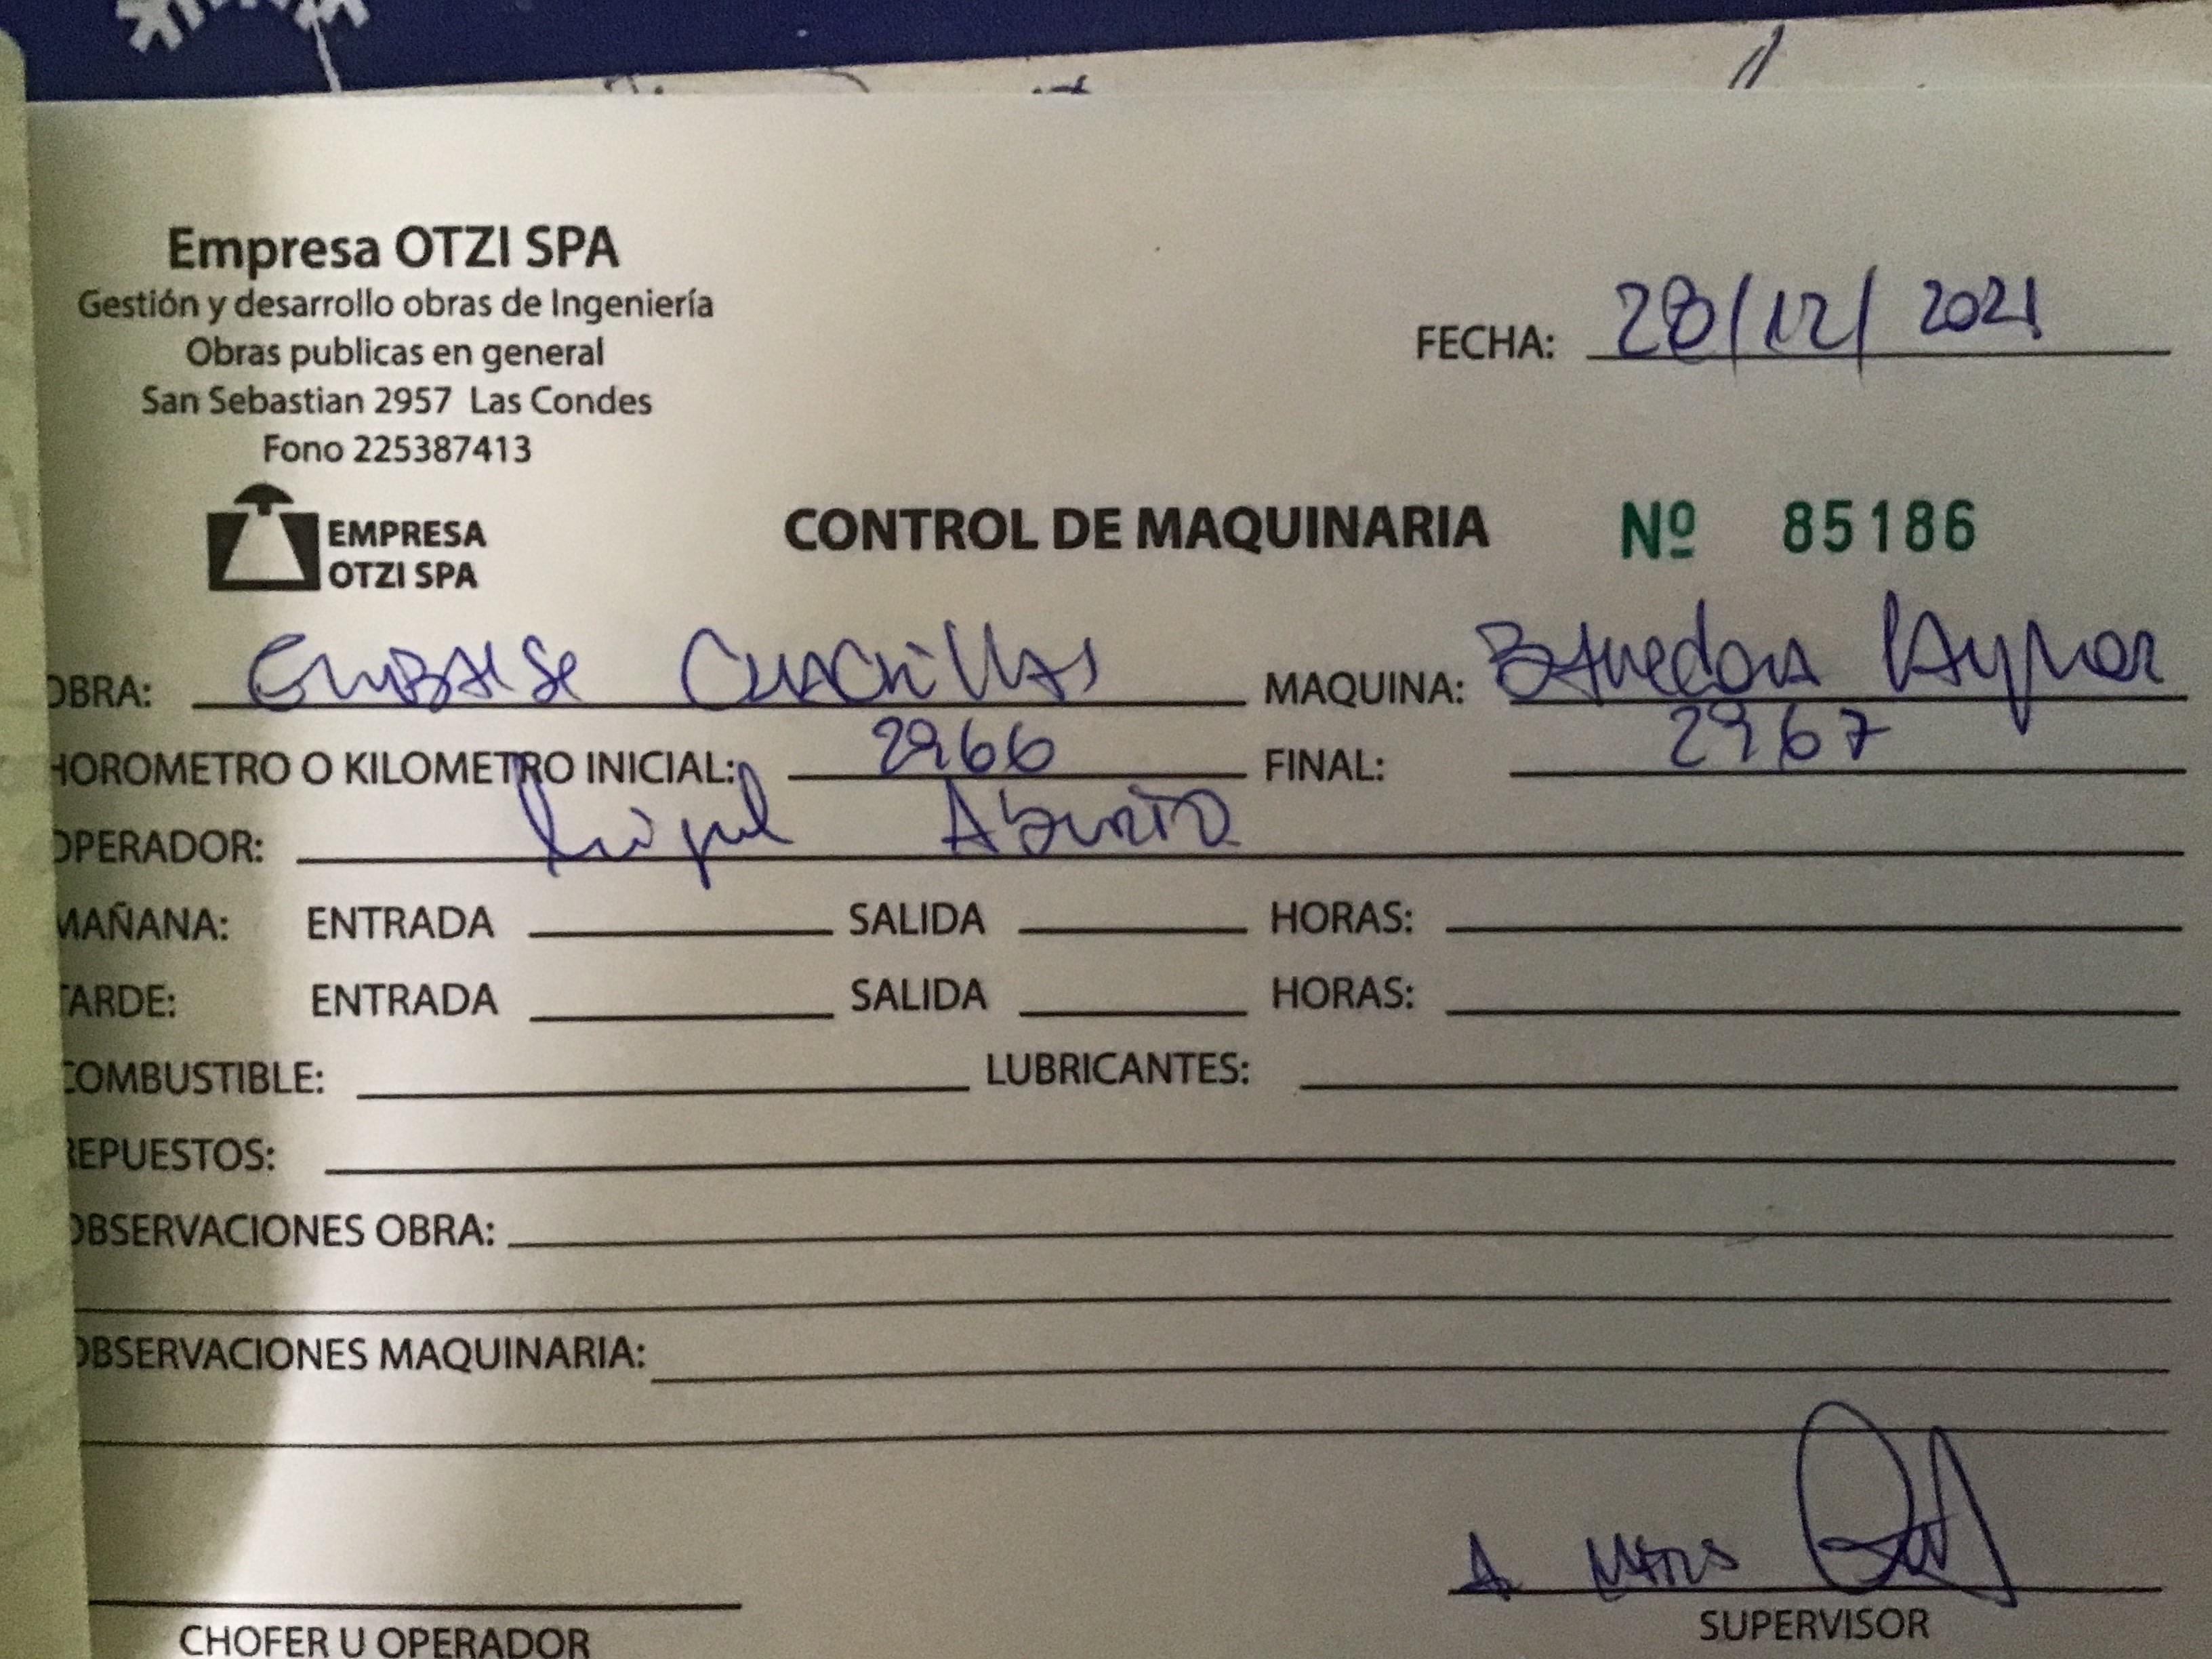 Empresa OTZI SPA
Gestión y desarrollo obras de Ingeniería
Obras publicas en general
San Sebastian 2957 Las Condes
Fono 225387413
FECHA: 28/12/2021
EMPRESA
OTZI SPA
CONTROL DE MAQUINARIA Nº 85186
OBRA: EMBALSE MAQUINA:
HOROMETRO O KILOMETRO INICIAL: 2966 FINAL: 2967
OPERADOR:
MAÑANA: ENTRADA SALIDA HORAS:
TARDE: ENTRADA SALIDA HORAS:
COMBUSTIBLE: LUBRICANTES:
REPUESTOS:
OBSERVACIONES OBRA:
OBSERVACIONES MAQUINARIA:
CHOFER U OPERADOR SUPERVISOR